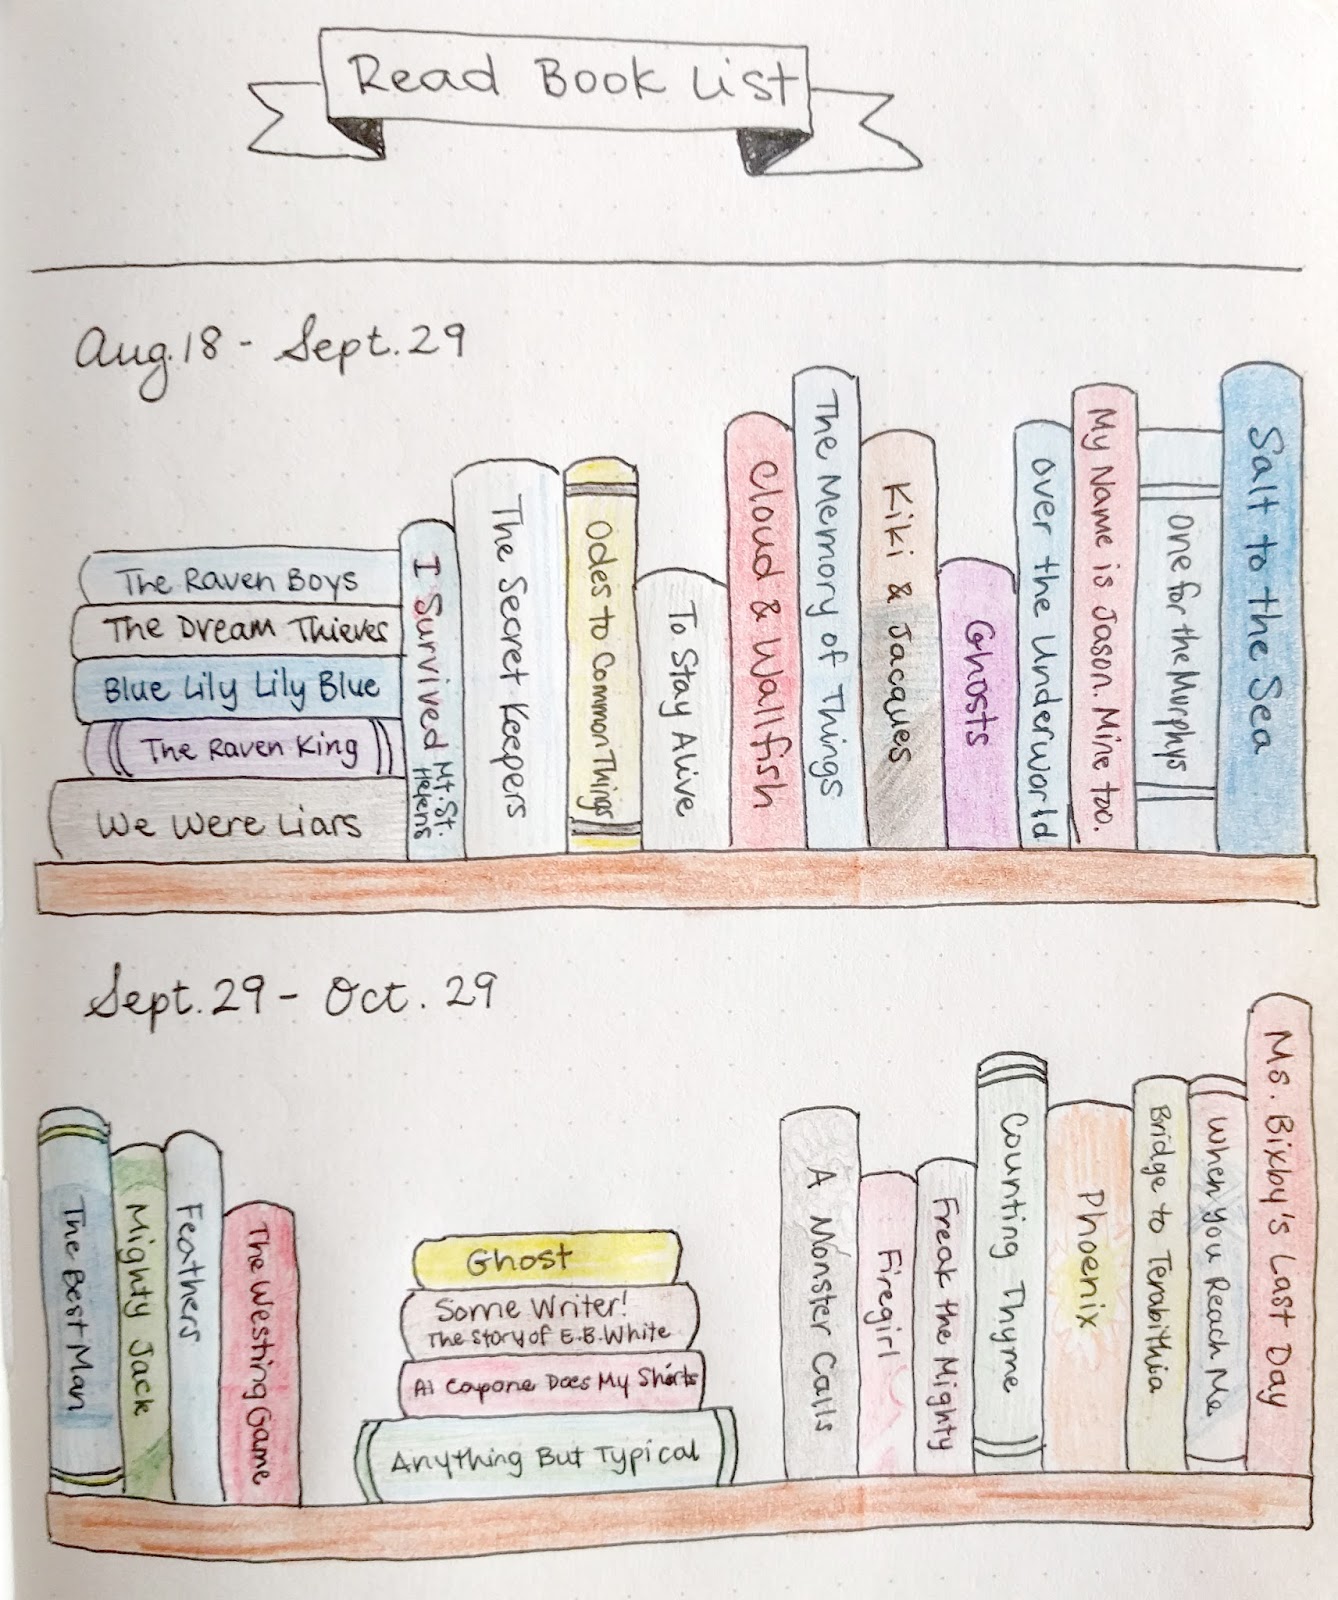 Read Book List
Aug. 18 - Sept. 29
The Raven Boys
The Dream Thieves
Blue Lily Lily Blue
The Raven King
We Were Liars
I Survived Mt. St.
Helens
The Secret Keepers
Odes to Common Things
To Stay Alive
Cloud & Wallfish
The Memory of Things
Kiki & Jacques
Ghosts
Over the Underworld
My Name is Jason. Mine too.
One for the Murphys
Salt to the Sea
Sept. 29 - Oct. 29
The Best Man
Mighty Jack
Feathers
The Westing Game
Ghost
Some Writer!
The Story of E.B. White
Al Capone Does My Shirts
Anything But Typical
A Monster Calls
Firegirl
Freak the Mighty
Counting Thyme
Phoenix
Bridge to Terabithia
When you Reach Me
Ms. Bixby's Last Day